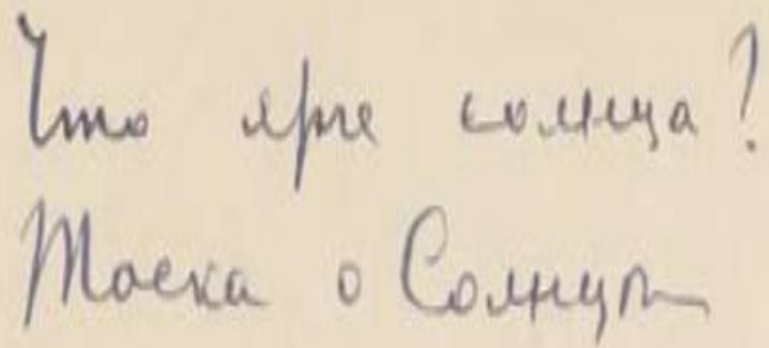 Что ярче солнца?
Тоска о Солнце